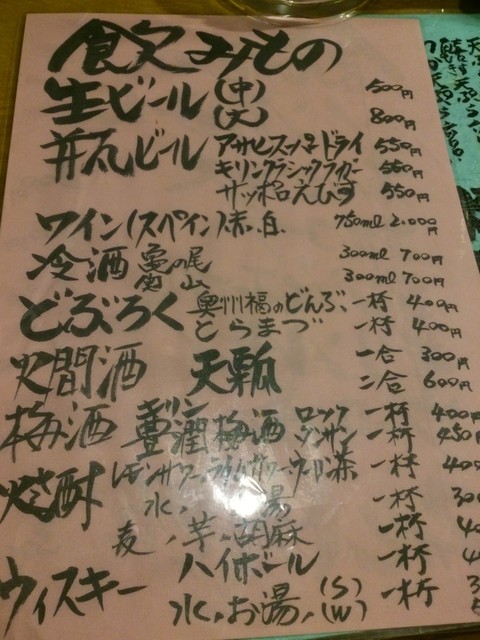 飲みもの
生ビール (中) 500円
(大) 800円
井瓦ビール アサヒスーパードライ 550円
キリンクラシックラガー 550円
サッポロえびす 550円
ワイン(スペイン)赤、白 750ml 2,000円
冷酒 亀の尾 300ml 700円
山 300ml 700円
どぶろく 奥州福のどんぶ 一杯 400円
とらまづ 一杯 400円
火間酒 天瓢 一合 300円
二合 600円
梅酒 キリン ロック 一杯 400
豊潤梅酒 ソーダ 一杯 450
焼酎 レモンサワー ウーロン茶 一杯 400
水、 湯 一杯 30
麦、芋、胡麻 一杯
ウィスキー ハイボール 一杯
水、お湯、(S) (W) 一杯